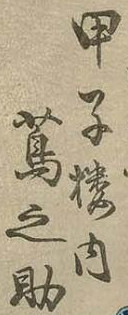 甲子楼内
蔦之助